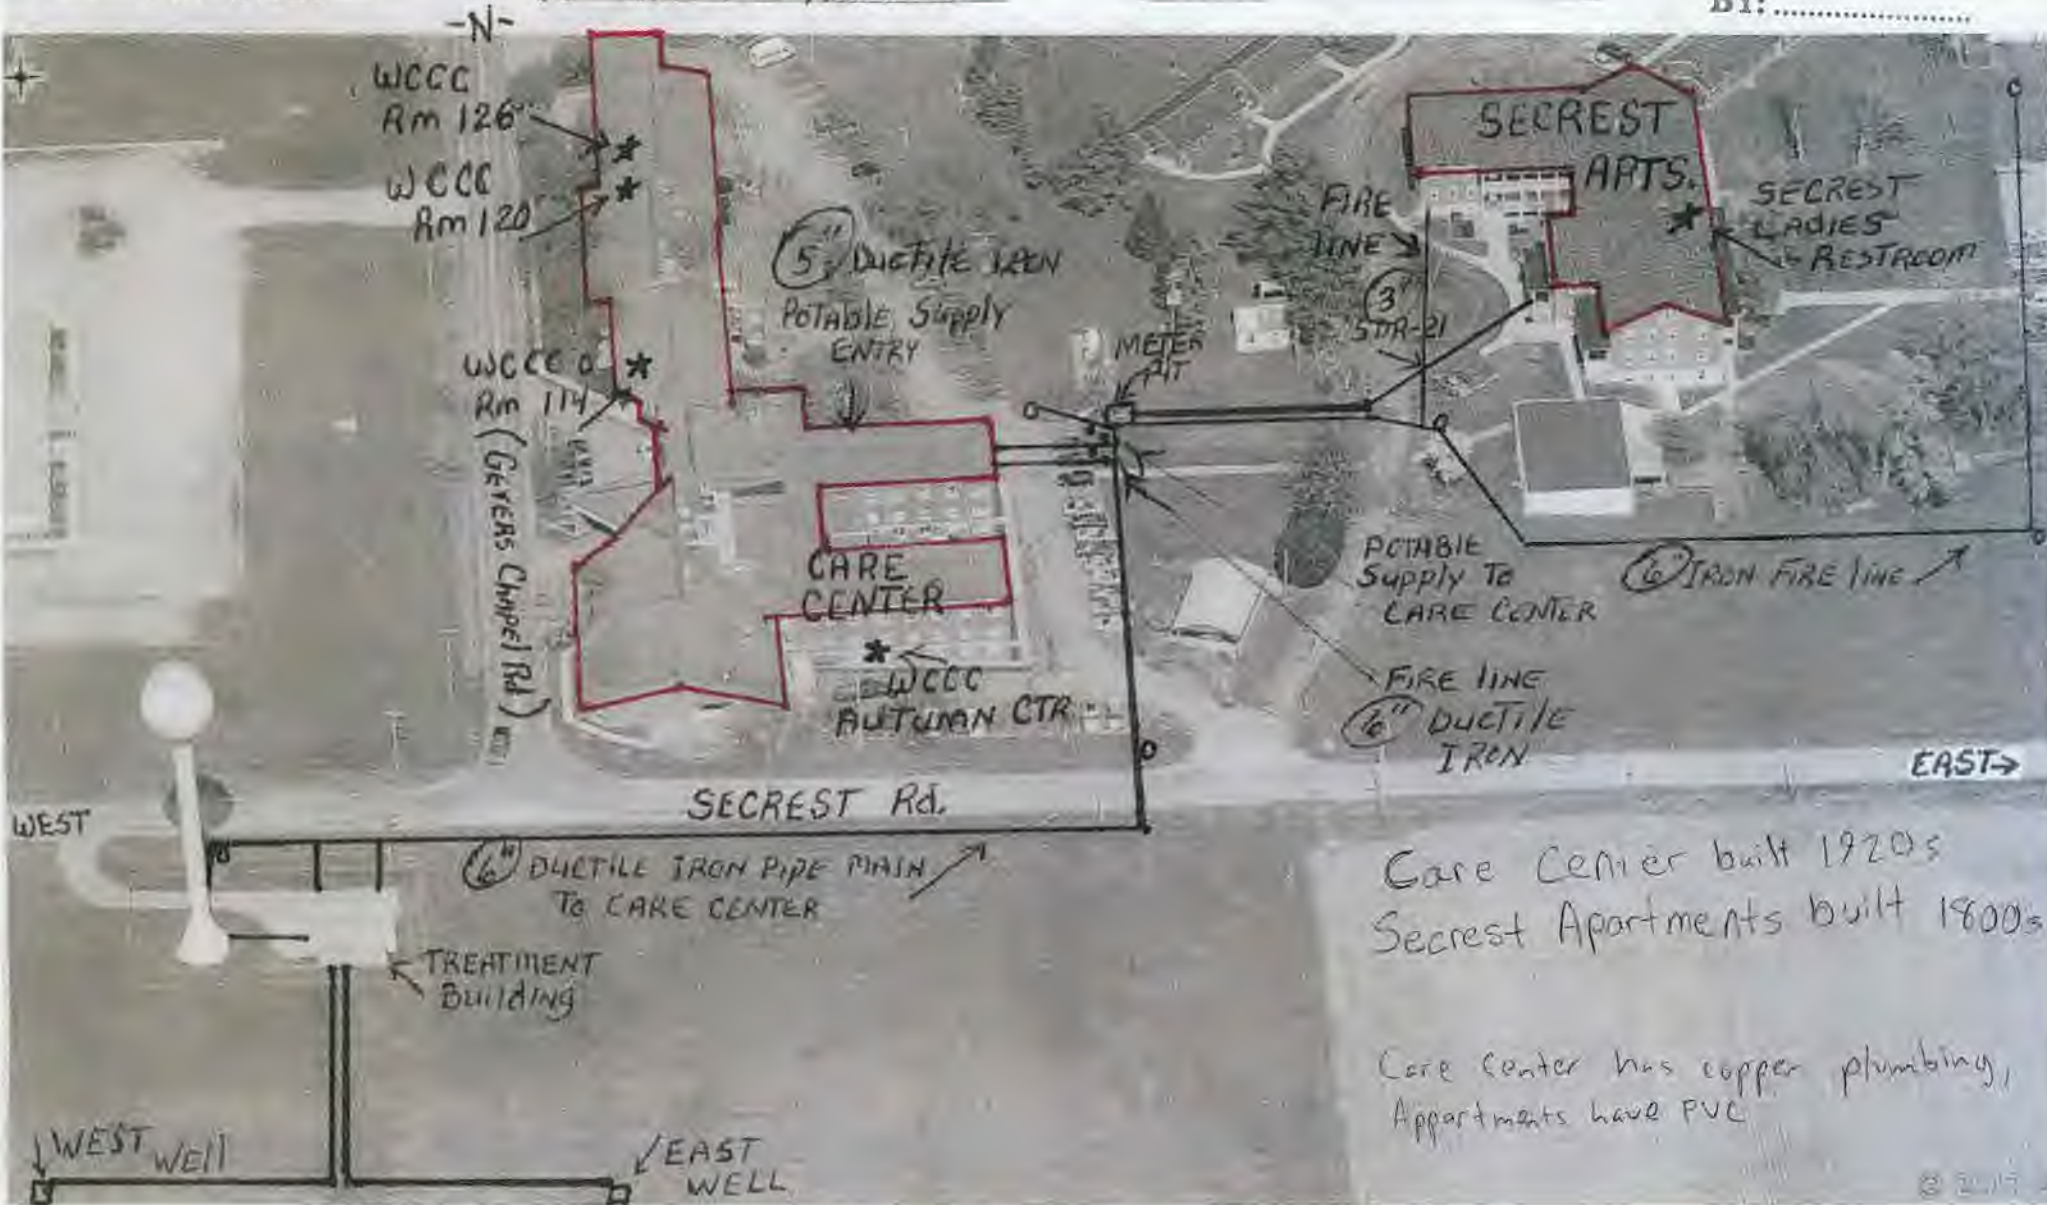 BY: ....................
-N-
WCCC
Rm 126
WCCC
Rm 120
WCCC
Rm 114
(GEYERS ChAPEl Rd)
5" DUCTILE IRON
POTABLE Supply
ENTRY
METER
PIT
FIRE
LINE
3"
SDR-21
SECREST
APTS.
SECREST
LADIES
RESTROOM
CARE
CENTER
WCCC
AUTUMN CTR
POTABLE
Supply To
CARE CENTER
6" IRON FIRE lINE
FIRE lINE
6" DUCTILE
IRON
EAST→
SECREST Rd.
WEST
6" DUCTILE IRON PIPE MAIN
To CARE CENTER
TREATMENT
BuildING
WEST WEll
EAST
WELL
Care Center built 1920s
Secrest Apartments built 1800's
Care Center has copper plumbing,
Appartments have PVC